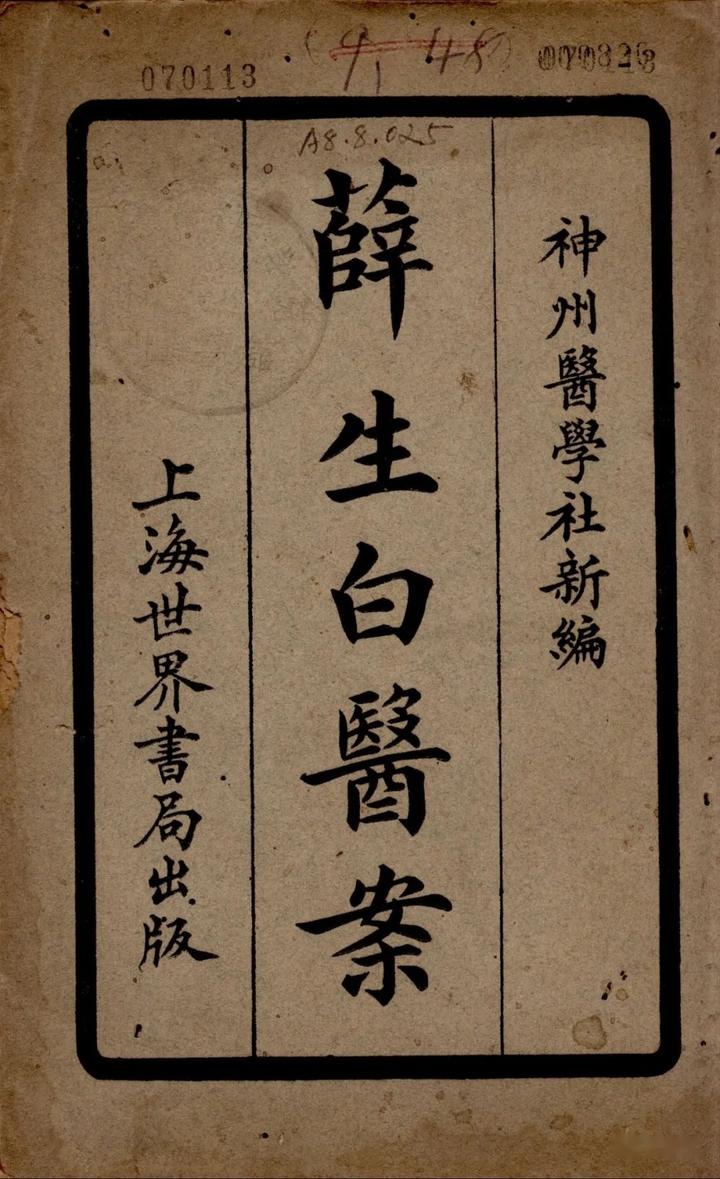 070113
A8.8.025
神州醫學社新編
薛生白醫案
上海世界書局出版